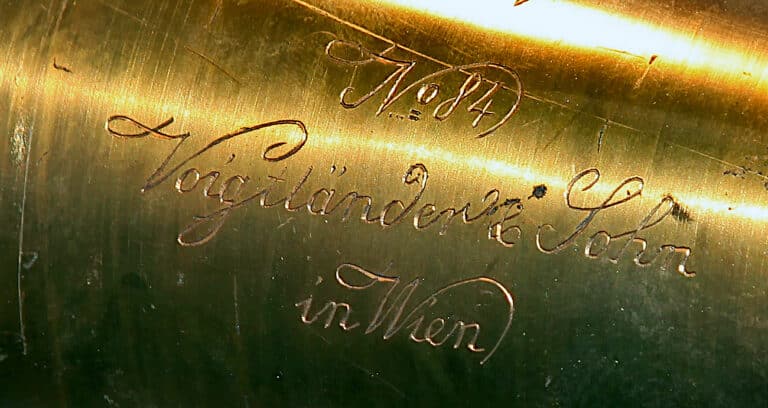 No 84
Voigtländer & Sohn
in Wien